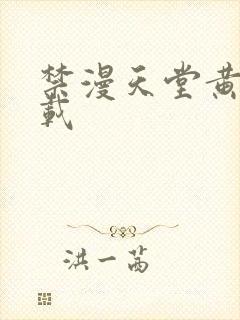 禁漫天堂黄
载
洪一茜